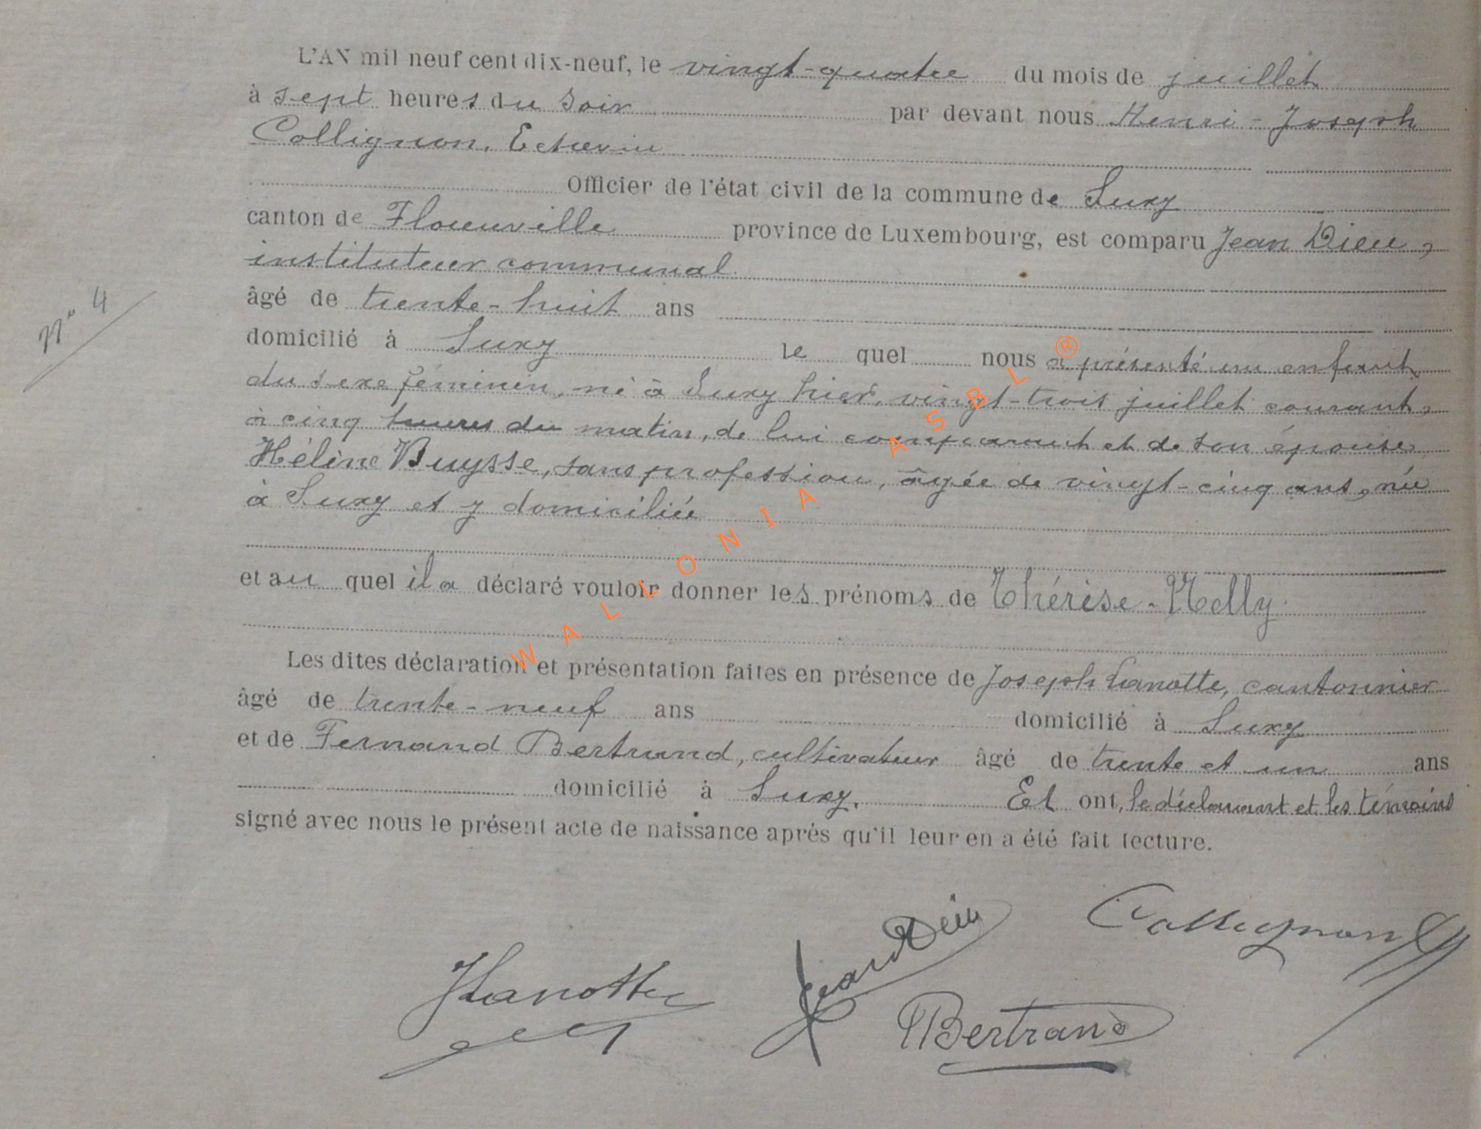 L'AN mil neuf cent dix-neuf, le vingt-quatre du mois de juillet
à sept heures du soir par devant nous Henri-Joseph
Collignon, Echevin
Officier de l'état civil de la commune de Suxy
canton de Florenville province de Luxembourg, est comparu Jean Dieu,
instituteur communal
âgé de trente-huit ans
domicilié à Suxy le quel nous a présenté un enfant
du sexe féminin, né à Suxy hier, vingt-trois juillet courant,
à cinq heures du matin, de lui comparant et de son épouse
Hélène Buysse, sans profession, âgée de vingt-cinq ans, née
à Suxy et y domiciliée
et au quel il a déclaré vouloir donner les prénoms de Thérèse-Nelly
Les dites déclaration et présentation faites en présence de Joseph Lanotte, cantonnier
âgé de trente-neuf ans domicilié à Suxy
et de Fernand Bertrand, cultivateur âgé de trente et un ans
domicilié à Suxy. Et ont, le déclarant et les témoins
signé avec nous le présent acte de naissance après qu'il leur en a été fait lecture.
N° 4
WALLONIA ASBL ®
JLanotte
Jean Dieu
Collignon
Bertrand